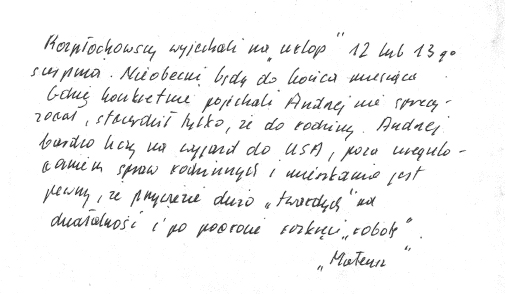 Kozpłochowscy wyjechali na „urlop” 12 lub 13 go
sierpnia. Nieobecni będą do końca miesiąca
Gdzie konkretnie pojechali Andrzej nie sprecy-
zował, stwierdził tylko, że do rodziny. Andrzej
bardzo liczy na wyjazd do USA, poza uregulo-
waniem spraw rodzinnych i mieszkania jest
pewny, że przywiezie dużo „twardych” na
działalność i po powrocie rozkręci „robotę”.
„Mateusz”